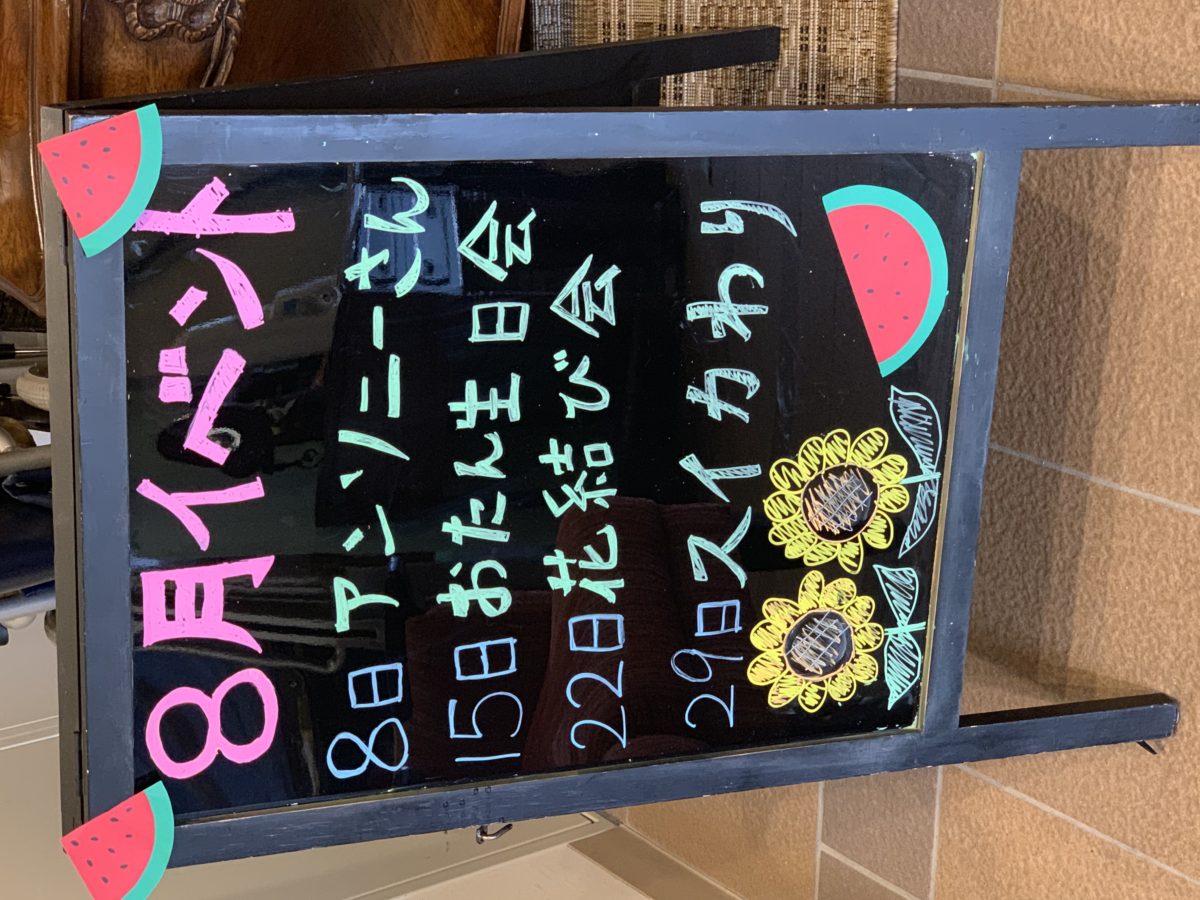 8月イベント
8日アンソニーさん
15日おたん生日会
22日花結び会
29日スイカわり